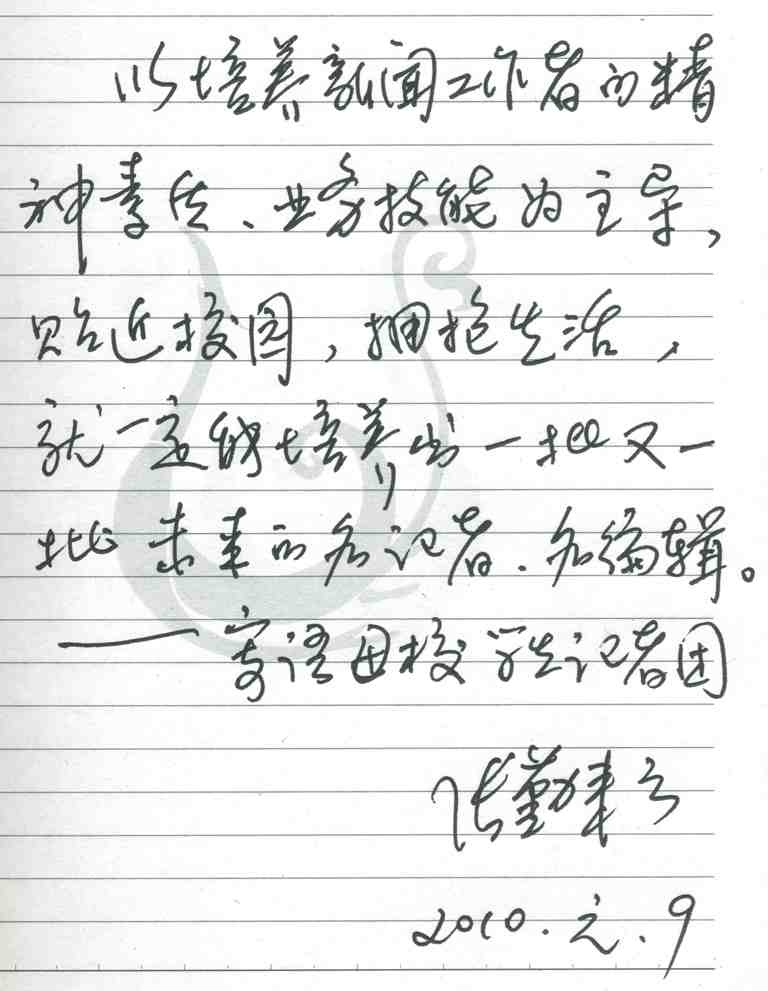 以培养新闻工作者的精
神素质、业务技能为主导,
贴近校园,拥抱生活,
就一定能培养出一批又一
批未来的名记者、名编辑。
——寄语母校学生记者团
张勤耘
2010.元.9